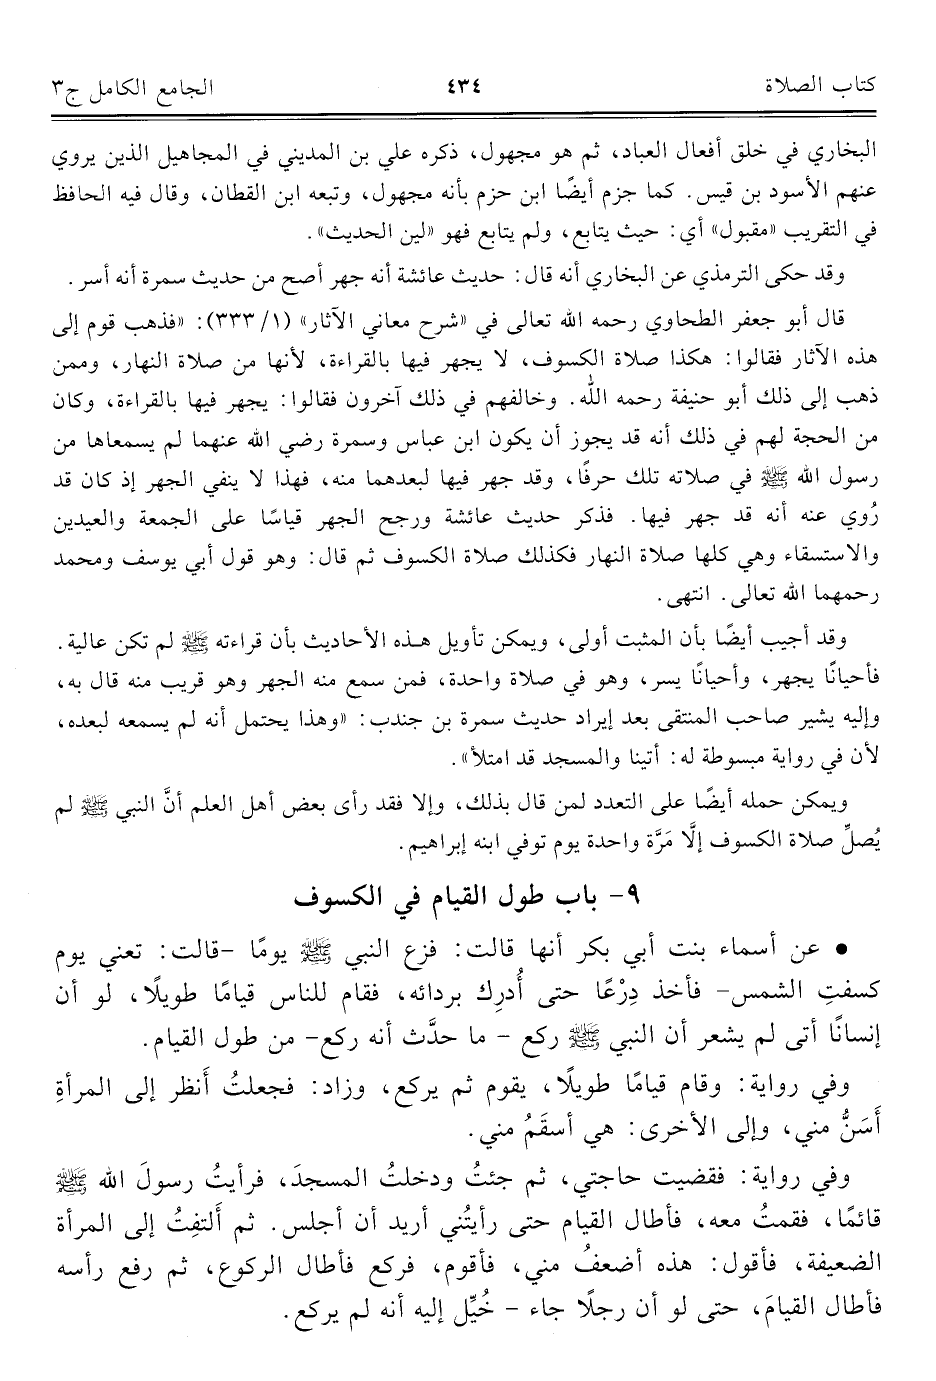 كتاب الصلاة ٤٣٤ الجامع الكامل ج٣
البخاري في خلق أفعال العباد، ثم هو مجهول، ذكره علي بن المديني في المجاهيل الذين يروي
عنهم الأسود بن قيس. كما جزم أيضًا ابن حزم بأنه مجهول، وتبعه ابن القطان، وقال فيه الحافظ
في التقريب «مقبول» أي: حيث يتابع، ولم يتابع فهو «لين الحديث».
وقد حكى الترمذي عن البخاري أنه قال: حديث عائشة أنه جهر أصح من حديث سمرة أنه أسر.
قال أبو جعفر الطحاوي رحمه الله تعالى في «شرح معاني الآثار» (١/ ٣٣٣): «فذهب قوم إلى
هذه الآثار فقالوا: هكذا صلاة الكسوف، لا يجهر فيها بالقراءة، لأنها من صلاة النهار، وممن
ذهب إلى ذلك أبو حنيفة رحمه الله. وخالفهم في ذلك آخرون فقالوا: يجهر فيها بالقراءة، وكان
من الحجة لهم في ذلك أنه قد يجوز أن يكون ابن عباس وسمرة رضي الله عنهما لم يسمعاها من
رسول الله ﷺ في صلاته تلك حرفًا، وقد جهر فيها لبعدهما منه، فهذا لا ينفي الجهر إذ كان قد
رُوي عنه أنه قد جهر فيها. فذكر حديث عائشة ورجح الجهر قياسًا على الجمعة والعيدين
والاستسقاء وهي كلها صلاة النهار فكذلك صلاة الكسوف ثم قال: وهو قول أبي يوسف ومحمد
رحمهما الله تعالى. انتهى.
وقد أجيب أيضًا بأن المثبت أولى، ويمكن تأويل هذه الأحاديث بأن قراءته ﷺ لم تكن عالية.
فأحيانًا يجهر، وأحيانًا يسر، وهو في صلاة واحدة، فمن سمع منه الجهر وهو قريب منه قال به،
وإليه يشير صاحب المنتقى بعد إيراد حديث سمرة بن جندب: «وهذا يحتمل أنه لم يسمعه لبعده،
لأن في رواية مبسوطة له: أتينا والمسجد قد امتلأ».
ويمكن حمله أيضًا على التعدد لمن قال بذلك، وإلا فقد رأى بعض أهل العلم أنَّ النبي ﷺ لم
يُصلِّ صلاة الكسوف إلَّا مَرَّة واحدة يوم توفي ابنه إبراهيم.
٩- باب طول القيام في الكسوف
• عن أسماء بنت أبي بكر أنها قالت: فزع النبي ﷺ يومًا -قالت: تعني يوم
كسفتِ الشمس- فأخذ دِرْعًا حتى أُدرِك بردائه، فقام للناس قيامًا طويلًا، لو أن
إنسانًا أتى لم يشعر أن النبي ﷺ ركع - ما حدَّث أنه ركع- من طول القيام.
وفي رواية: وقام قيامًا طويلًا، يقوم ثم يركع، وزاد: فجعلتُ أَنظر إلى المرأةِ
أَسَنُّ مني، وإلى الأخرى: هي أسقَمُ مني.
وفي رواية: فقضيت حاجتي، ثم جئتُ ودخلتُ المسجدَ، فرأيتُ رسولَ الله ﷺ
قائمًا، فقمتُ معه، فأطال القيام حتى رأيتُني أريد أن أجلس. ثم أَلتفِتُ إلى المرأة
الضعيفة، فأقول: هذه أضعفُ مني، فأقوم، فركع فأطال الركوع، ثم رفع رأسه
فأطال القيامَ، حتى لو أن رجلًا جاء - خُيِّل إليه أنه لم يركع.